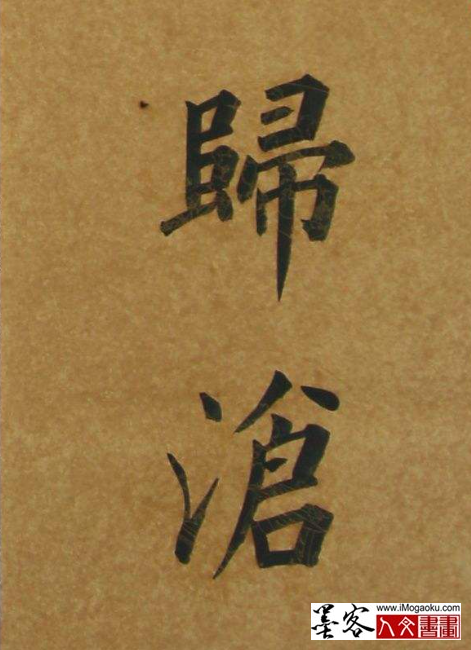 歸
滄
www.iMogaoku.com
墨客
人文書畫